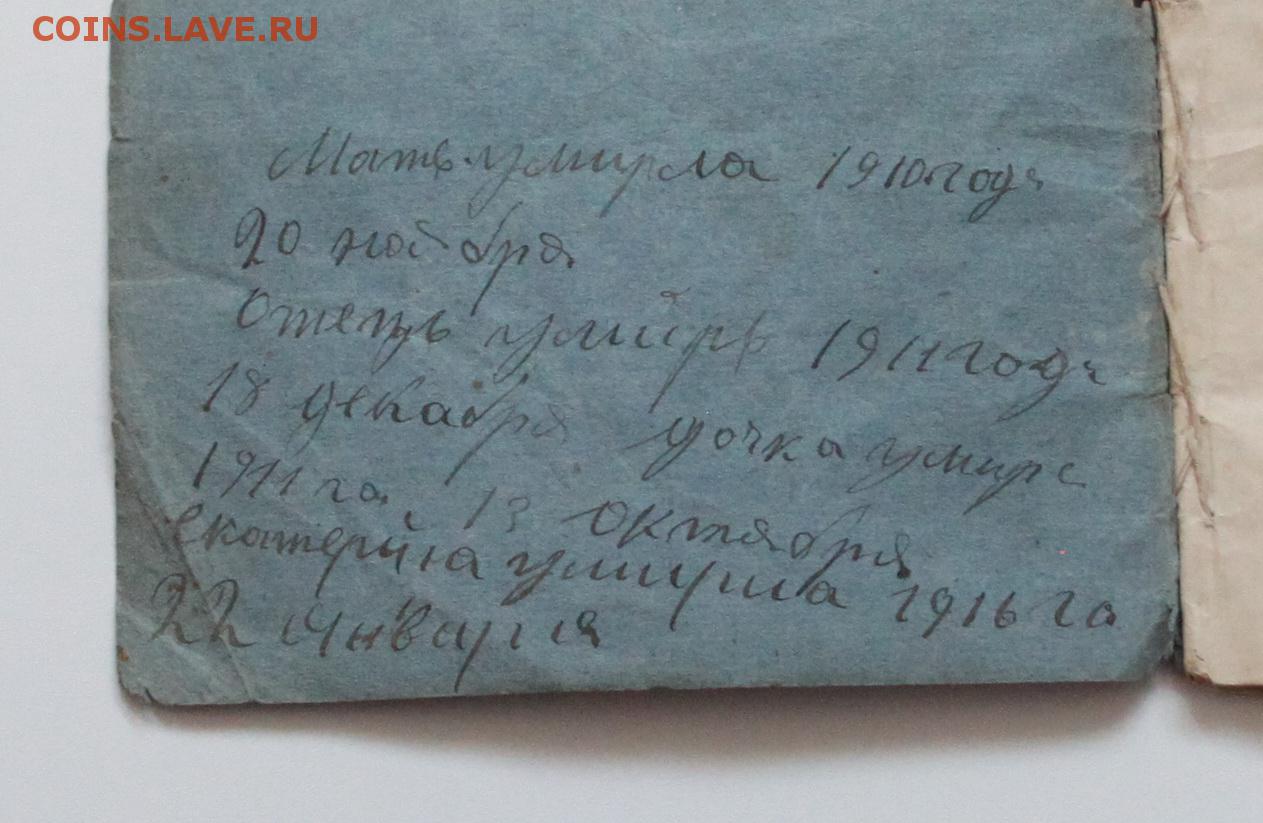 COINS.LAVE.RU
Мать умирла 1910 года
20 ноября
Отець умиръ 1911 года
18 декабря дочка умирла
1911 га 13 октября
екатерина умирла 1916 га
22 Января